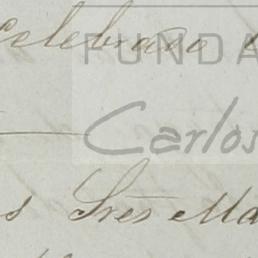 celebrado
FUNDA
Carlos
s Tres Ma